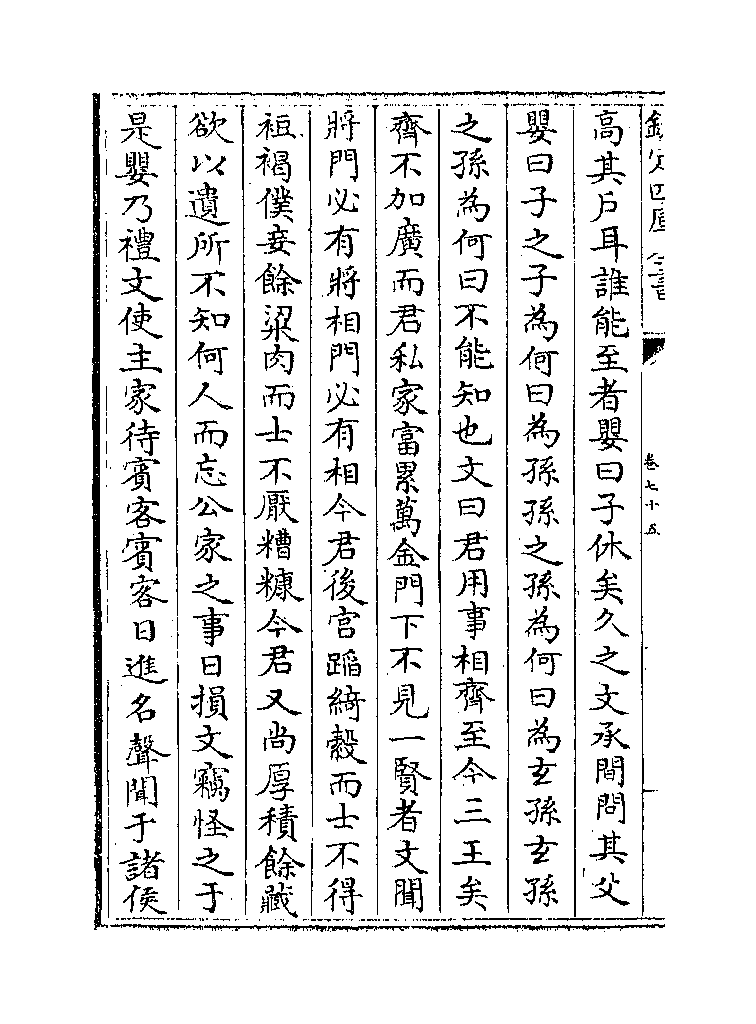 欽定四庫全書
卷七十五
高其戶耳誰能至者嬰曰子休矣久之文承間問其父
嬰曰子之子為何曰為孫孫之孫為何曰為玄孫玄孫
之孫為何曰不能知也文曰君用事相齊至今三王矣
齊不加廣而君私家富累萬金門下不見一賢者文聞
將門必有將相門必有相今君後宮蹈綺縠而士不得
裋褐僕妾餘粱肉而士不厭糟糠今君又尚厚積餘藏
欲以遺所不知何人而忘公家之事日損文竊怪之于
是嬰乃禮文使主家待賓客賓客日進名聲聞于諸侯